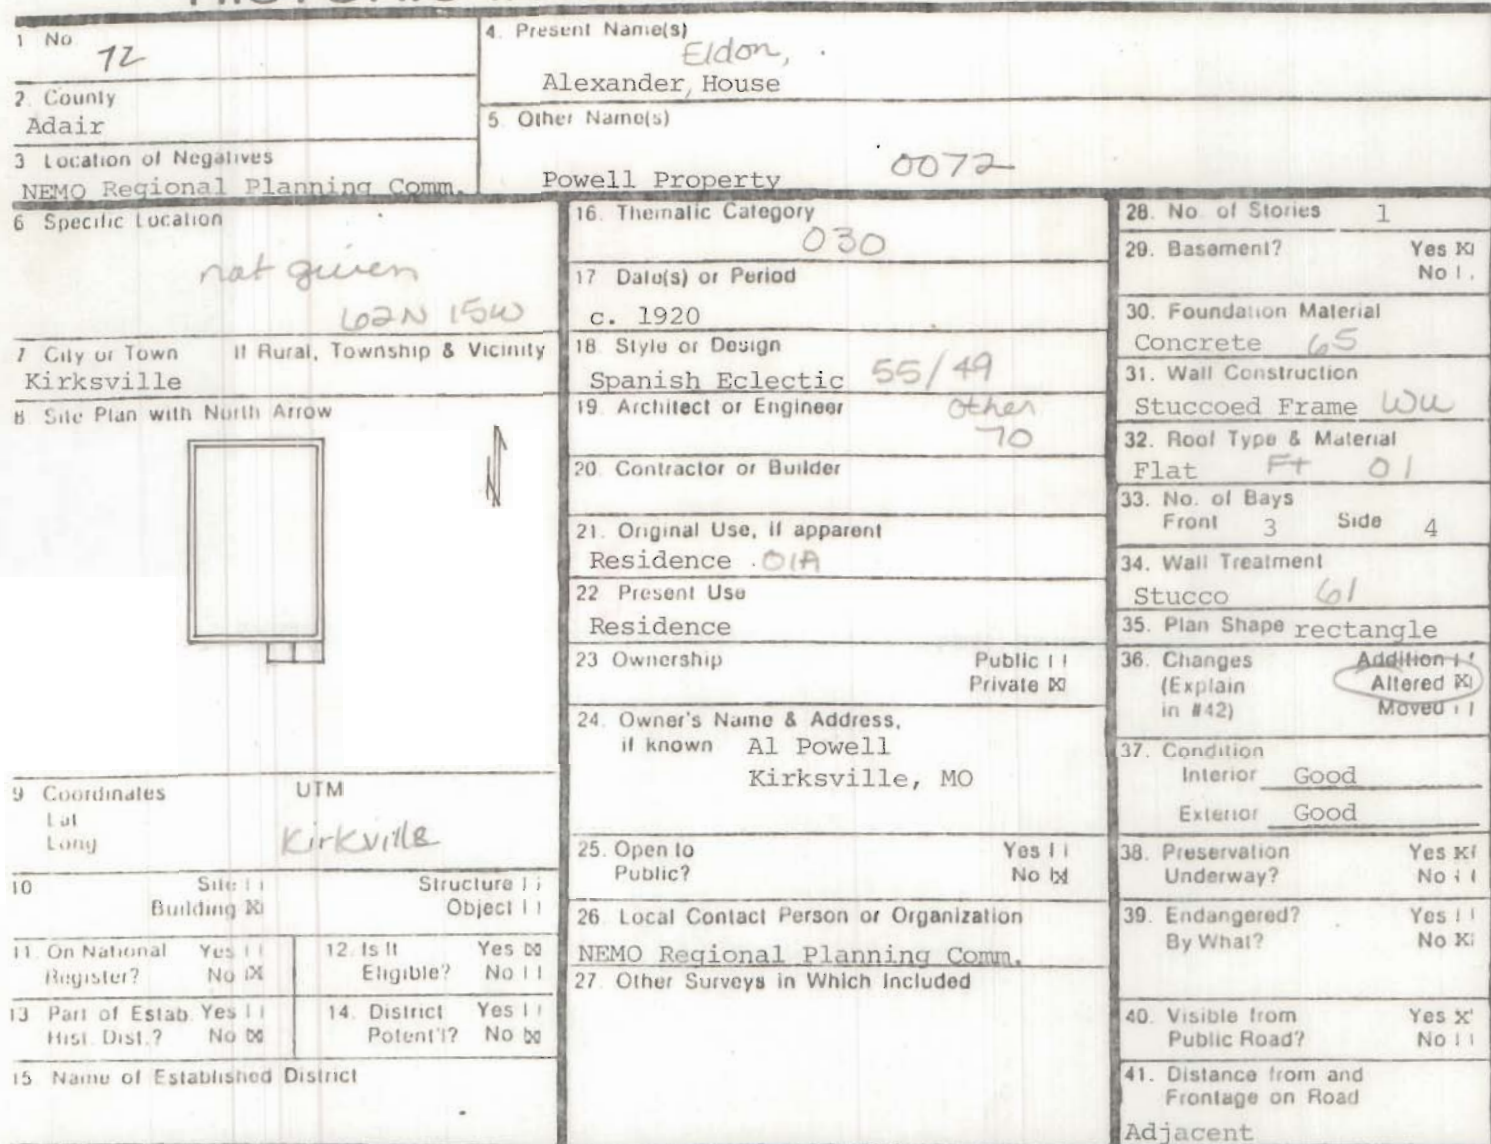 1 No.
72
2. County
Adair
3 Location of Negatives
NEMO Regional Planning Comm.
4. Present Name(s)
Eldon,
Alexander, House
5. Other Name(s)
0072
Powell Property
6 Specific Location
not given
62N 15W
7 City or Town If Rural, Township & Vicinity
Kirksville
8 Site Plan with North Arrow
9 Coordinates UTM
Lat
Long
Kirkville
10 Site Structure
Building X Object
11 On National Yes
Register? No X
12. Is It Yes X
Eligible? No
13 Part of Estab. Yes
Hist. Dist.? No X
14. District Yes
Potent'l? No X
15 Name of Established District
16. Thematic Category
030
17 Date(s) or Period
c. 1920
18 Style or Design
Spanish Eclectic 55/49
19. Architect or Engineer Other
70
20. Contractor or Builder
21. Original Use, if apparent
Residence 01A
22 Present Use
Residence
23 Ownership Public
Private X
24. Owner's Name & Address,
if known Al Powell
Kirksville, MO
25. Open to Yes
Public? No X
26. Local Contact Person or Organization
NEMO Regional Planning Comm.
27. Other Surveys in Which Included
28. No. of Stories 1
29. Basement? Yes X
No
30. Foundation Material
Concrete 65
31. Wall Construction
Stuccoed Frame WU
32. Roof Type & Material
Flat Ft 01
33. No. of Bays
Front 3 Side 4
34. Wall Treatment
Stucco 61
35. Plan Shape rectangle
36. Changes Addition
(Explain Altered X
in #42) Moved
37. Condition
Interior Good
Exterior Good
38. Preservation Yes X
Underway? No
39. Endangered? Yes
By What? No X
40. Visible from Yes X
Public Road? No
41. Distance from and
Frontage on Road
Adjacent